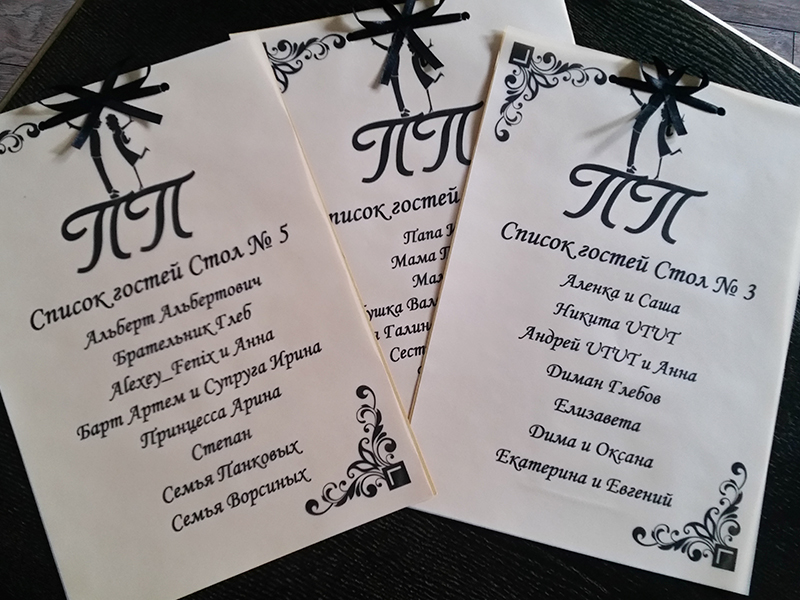 ПП
Список гостей Стол № 5
Альберт Альбертович
Брательник Глеб
Alexey_Fenix и Анна
Барт Артем и Супруга Ирина
Принцесса Арина
Степан
Семья Панковых
Семья Ворсиных
ПП
гостей
Папа
Мама
Вал
Галин
Сест
ПП
Список гостей Стол № 3
Аленка и Саша
Никита UTUT
Андрей UTUT и Анна
Диман Глебов
Елизавета
Дима и Оксана
Екатерина и Евгений